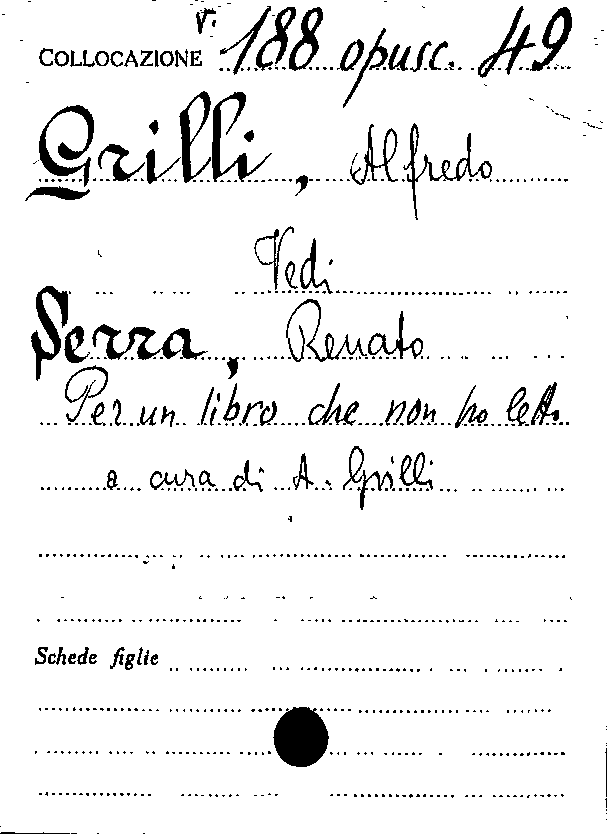 COLLOCAZIONE v. 188 opusc. 49
Grilli, Alfredo
Vedi
Serra, Renato
Per un libro che non ho letto
a cura di A. Grilli
Schede figlie